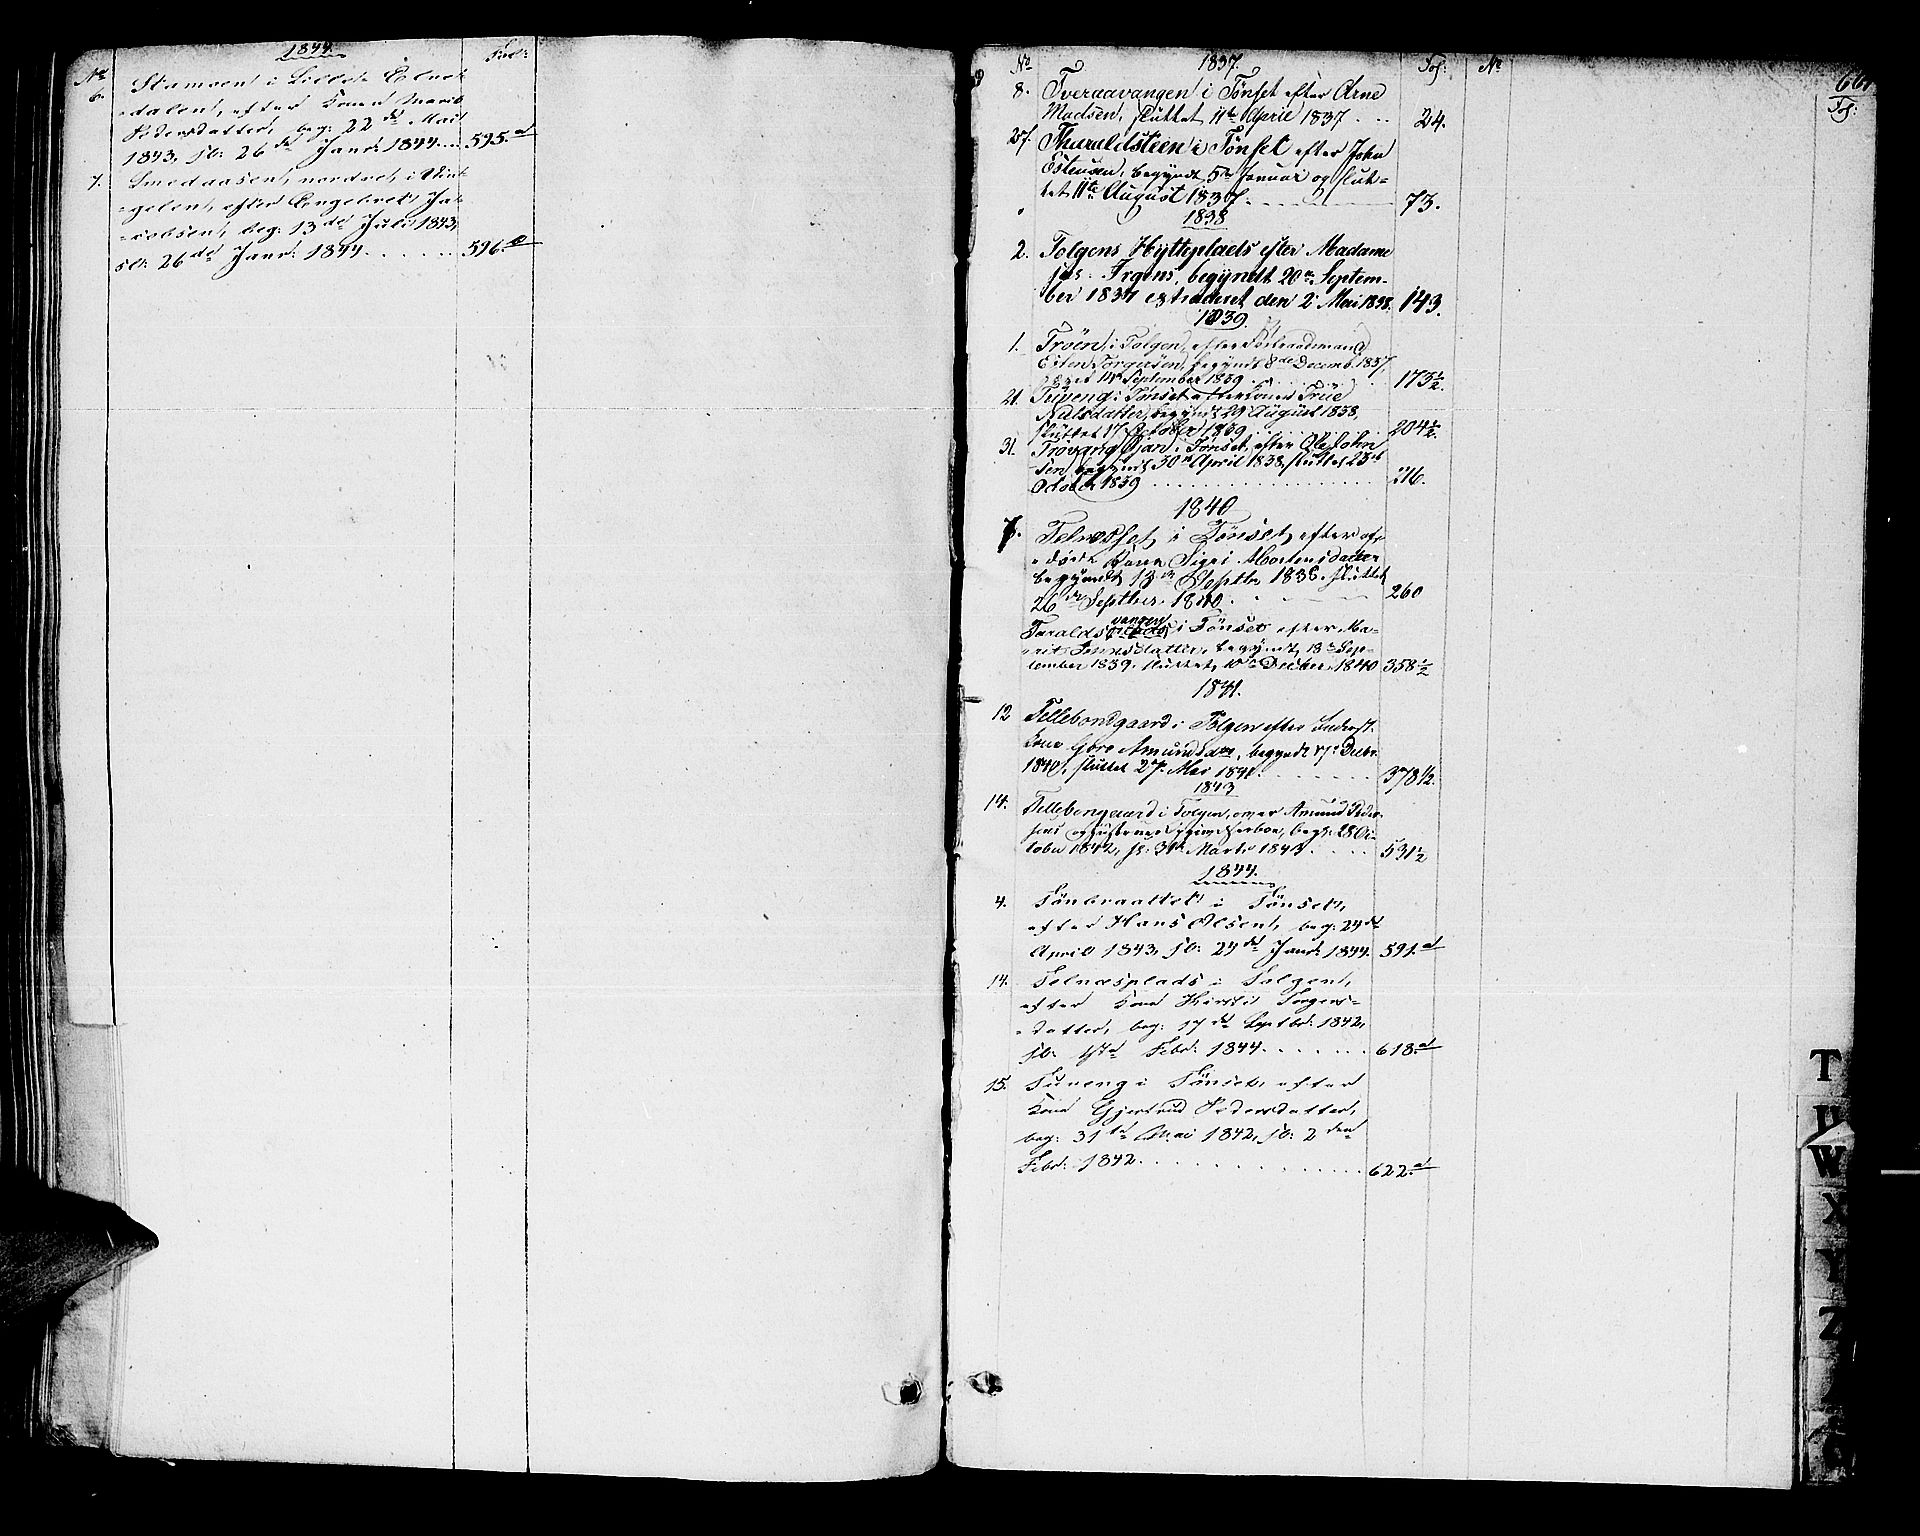 1844.
No Fol:
6. Stamoen i Lille Elve
dalen, efter Kone Marit
Pedersdatter, beg: 22de Mai
1843, sl: 26de Janr: 1844.... 595.a
7. Smedaasen, nordre, i Rin-
gelen, efter Engebret Ja-
cobsen, beg: 13de Juli 1843,
sl: 26de Janr: 1844. . . . . . 596.a
No 1837. Fol: No
Fol:
8. Tveraavangen i Tønset efter Arne
Madsen, sluttet 11te April 1837 . . . 24.
27. Tharaldsteen i Tønset efter John
Estensen, begyndt 5te Januar og slut-
tet 11te August 1837. 73.
1838
2. Tolgens Hytteplads efter Madame
Irgens, begyndt 20de Septem-
ber 1837 extraderet den 2 Mai 1838. 143.
1839.
1. Trøen i Tolgen, efter
Esten Torgersen, begyndt 8de Decemb. 1837,
14de September 1839 . . . 173½.
21. Tuveng i Tønset efter Konen True
Nilsdatter, begyndt 29 August 1838
sluttet 17 October 1839 . . . . 204½.
31. Trøvang i Tønset, efter Ole John
sen begyndt 30te April 1838, sluttet 23de
October 1839 . . . . . . . . . . 216.
1840
7. Telneset i Tønset, efter af-
døde Kone Sigri Mortensdatter
begyndt 13de Septbr 1838, sluttet
26de Septber 1840. 260
vangen
Taralds i Tønset efter Ma-
rit Jonnsdatter, begyndt 18de Sep-
tember 1839, sluttet, 10de Decber, 1840 358½
1841.
12 Tellebondgaard i Tolgen efter
Kone Gore Amundsdtr, begyndt 17de Decbr.
1840, sluttet 27. Mai 1841. . . . . . . 378½.
1843
14. Tellebongaard i Tolgen, Amund Peder-
sens beg: 28 Oc-
tober 1842, sl: 31te Marts 1843 . . . . 531½
1844.
4. Tønbraattet i Tønset,
efter Hans Olsen, beg: 24de
April 1843, sl: 24de Janr: 1844. 591.a
14. Telnesplads i Tolgen,
efter Kone Kirsti Torgers-
datter, beg: 17de Septbr: 1842,
sl: Febr: 1844. . . . . . . 618.a
15. Tuneng i Tønset, efter
Kone Gjertrud Pedersdatter,
beg: 31te Mai 1842, sl: 2den
Febr: 1842. . . . . . . . . . . . . 622.a
T
U
W
X
Y
Z